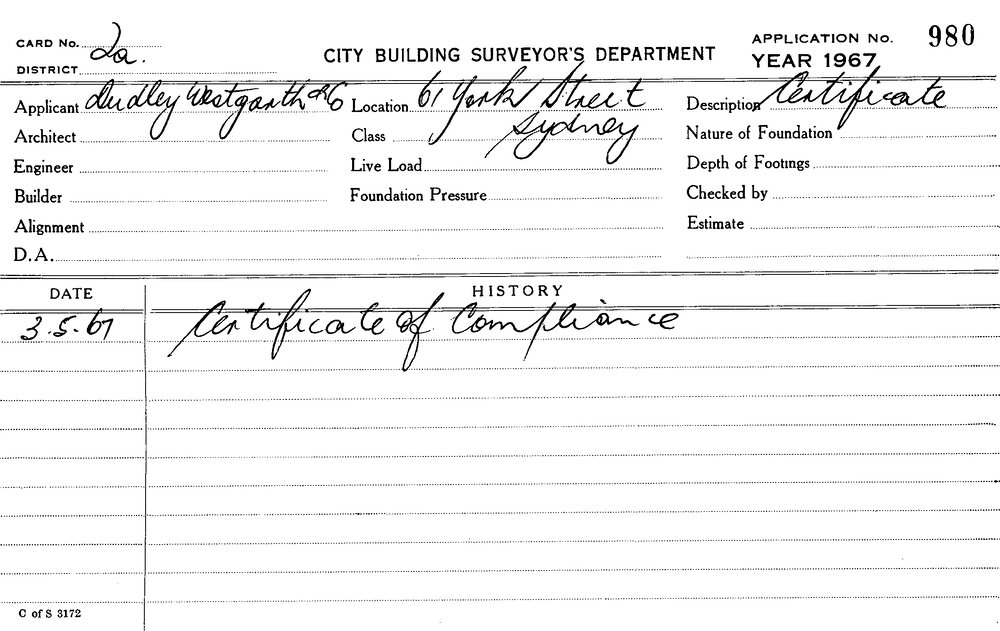 CARD No. 2a.
DISTRICT
CITY BUILDING SURVEYOR'S DEPARTMENT
APPLICATION No. 980
YEAR 1967
Applicant Dudley Westgarth & Co Location 61 York Street Description Certificate
Architect Class Sydney Nature of Foundation
Engineer Live Load Depth of Footings
Builder Foundation Pressure Checked by
Alignment Estimate
D.A.
DATE HISTORY
3.5.67 Certificate of Compliance
C of S 3172